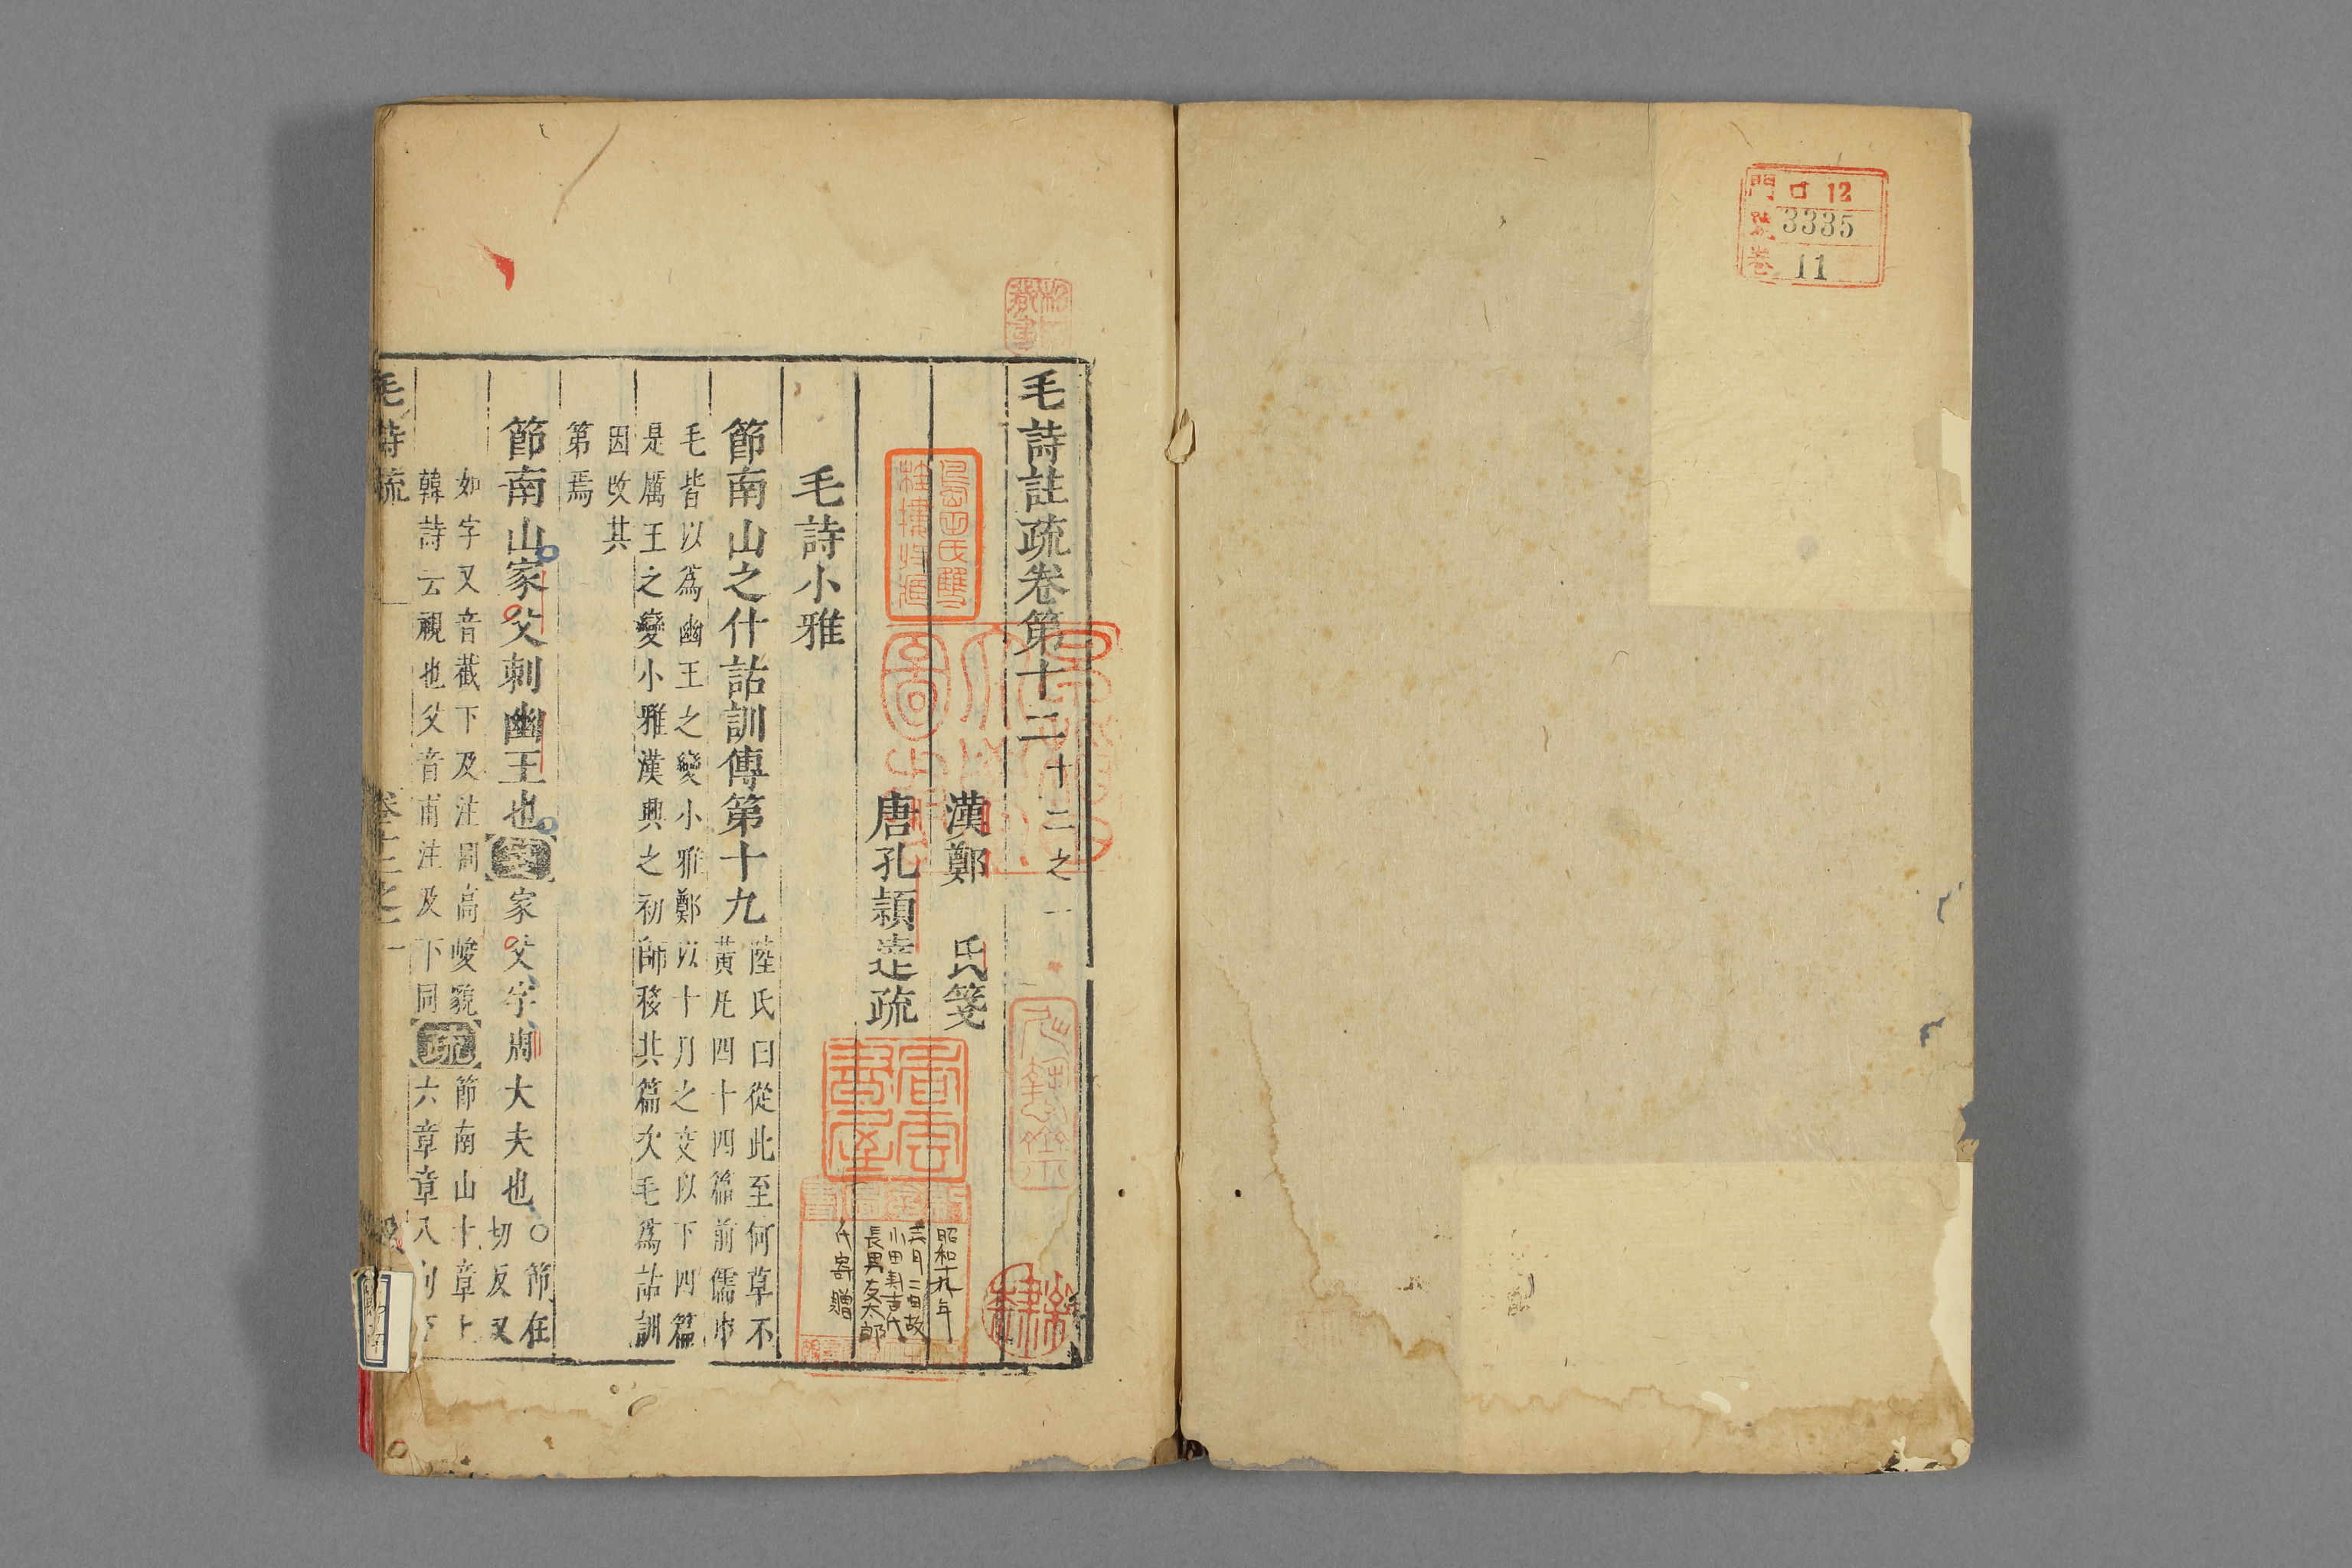 門 ロ 12
號 3335
卷 11
毛詩註疏卷第十二 十二之一
漢鄭 氏箋
唐孔穎達疏
毛詩小雅
節南山之什詁訓傳第十九
陸氏曰從此至何草不
黃凡四十四篇前儒申
毛皆以爲幽王之變小雅鄭以十月之交以下四篇
是厲王之變小雅漢興之初師移其篇次毛爲詁訓
因改其
第焉
節南山家父刺幽王也 箋 家父字周大夫也
○節在
切反又
如字又音截下及注同高峻貌
韓詩云視也父音甫注及下同
疏
節南山十章上
六章章八句
毛詩疏
卷十二之一
一
昭和十九年
小田寿吉氏
長男友太郎
氏寄贈